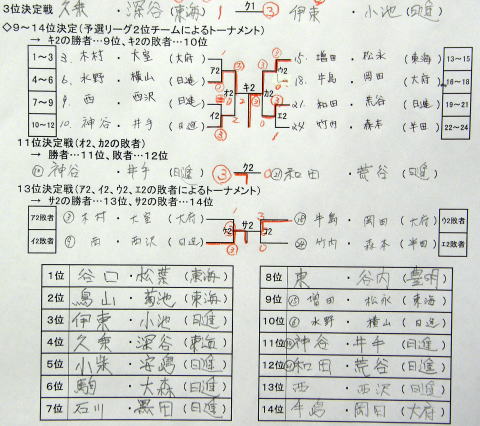 3位決定戦 久乗・深谷(東海) 1 ク1 ③ 伊東・小池(日進)
◇9～14位決定(予選リーグ2位チームによるトーナメント)
→ キ2の勝者…9位、キ2の敗者…10位
1～3 3. 木村・大室(大府) ア2 ウ2 15. 増田・松永(東海) 13～15
4～6 6. 水野・横山(日進) オ2 キ2 カ2 18. 牛島・岡田(大府) 16～18
7～9 9. 西・西沢(日進) 21. 和田・荒谷(日進) 19～21
10～12 10. 神谷・井手(日進) イ2 エ2 24. 竹内・森本(半田) 22～24
11位決定戦(オ2、カ2の敗者)
→ 勝者…11位、敗者…12位
⑩ 神谷・井手(日進) ③ ケ2 0 ㉑ 和田・荒谷(日進)
13位決定戦(ア2、イ2、ウ2、エ2の敗者によるトーナメント)
→ サ2の勝者…13位、サ2の敗者…14位
ア2敗者 ③ 木村・大室(大府) サ2 ⑱ 牛島・岡田(大府) ウ2敗者
イ2敗者 ⑨ 西・西沢(日進) ㉔ 竹内・森本(半田) エ2敗者
1位 谷口・松葉(東海)
2位 鳥山・菊池(東海)
3位 伊東・小池(日進)
4位 久乗・深谷(東海)
5位 小柴・安島(日進)
6位 駒・大森(日進)
7位 石川・黒田(日進)
8位 東・谷内(豊明)
9位 ⑮ 増田・松永(東海)
10位 ⑥ 水野・横山(日進)
11位 ⑩ 神谷・井手(日進)
12位 ㉑ 和田・荒谷(日進)
13位 西・西沢(日進)
14位 牛島・岡田(大府)